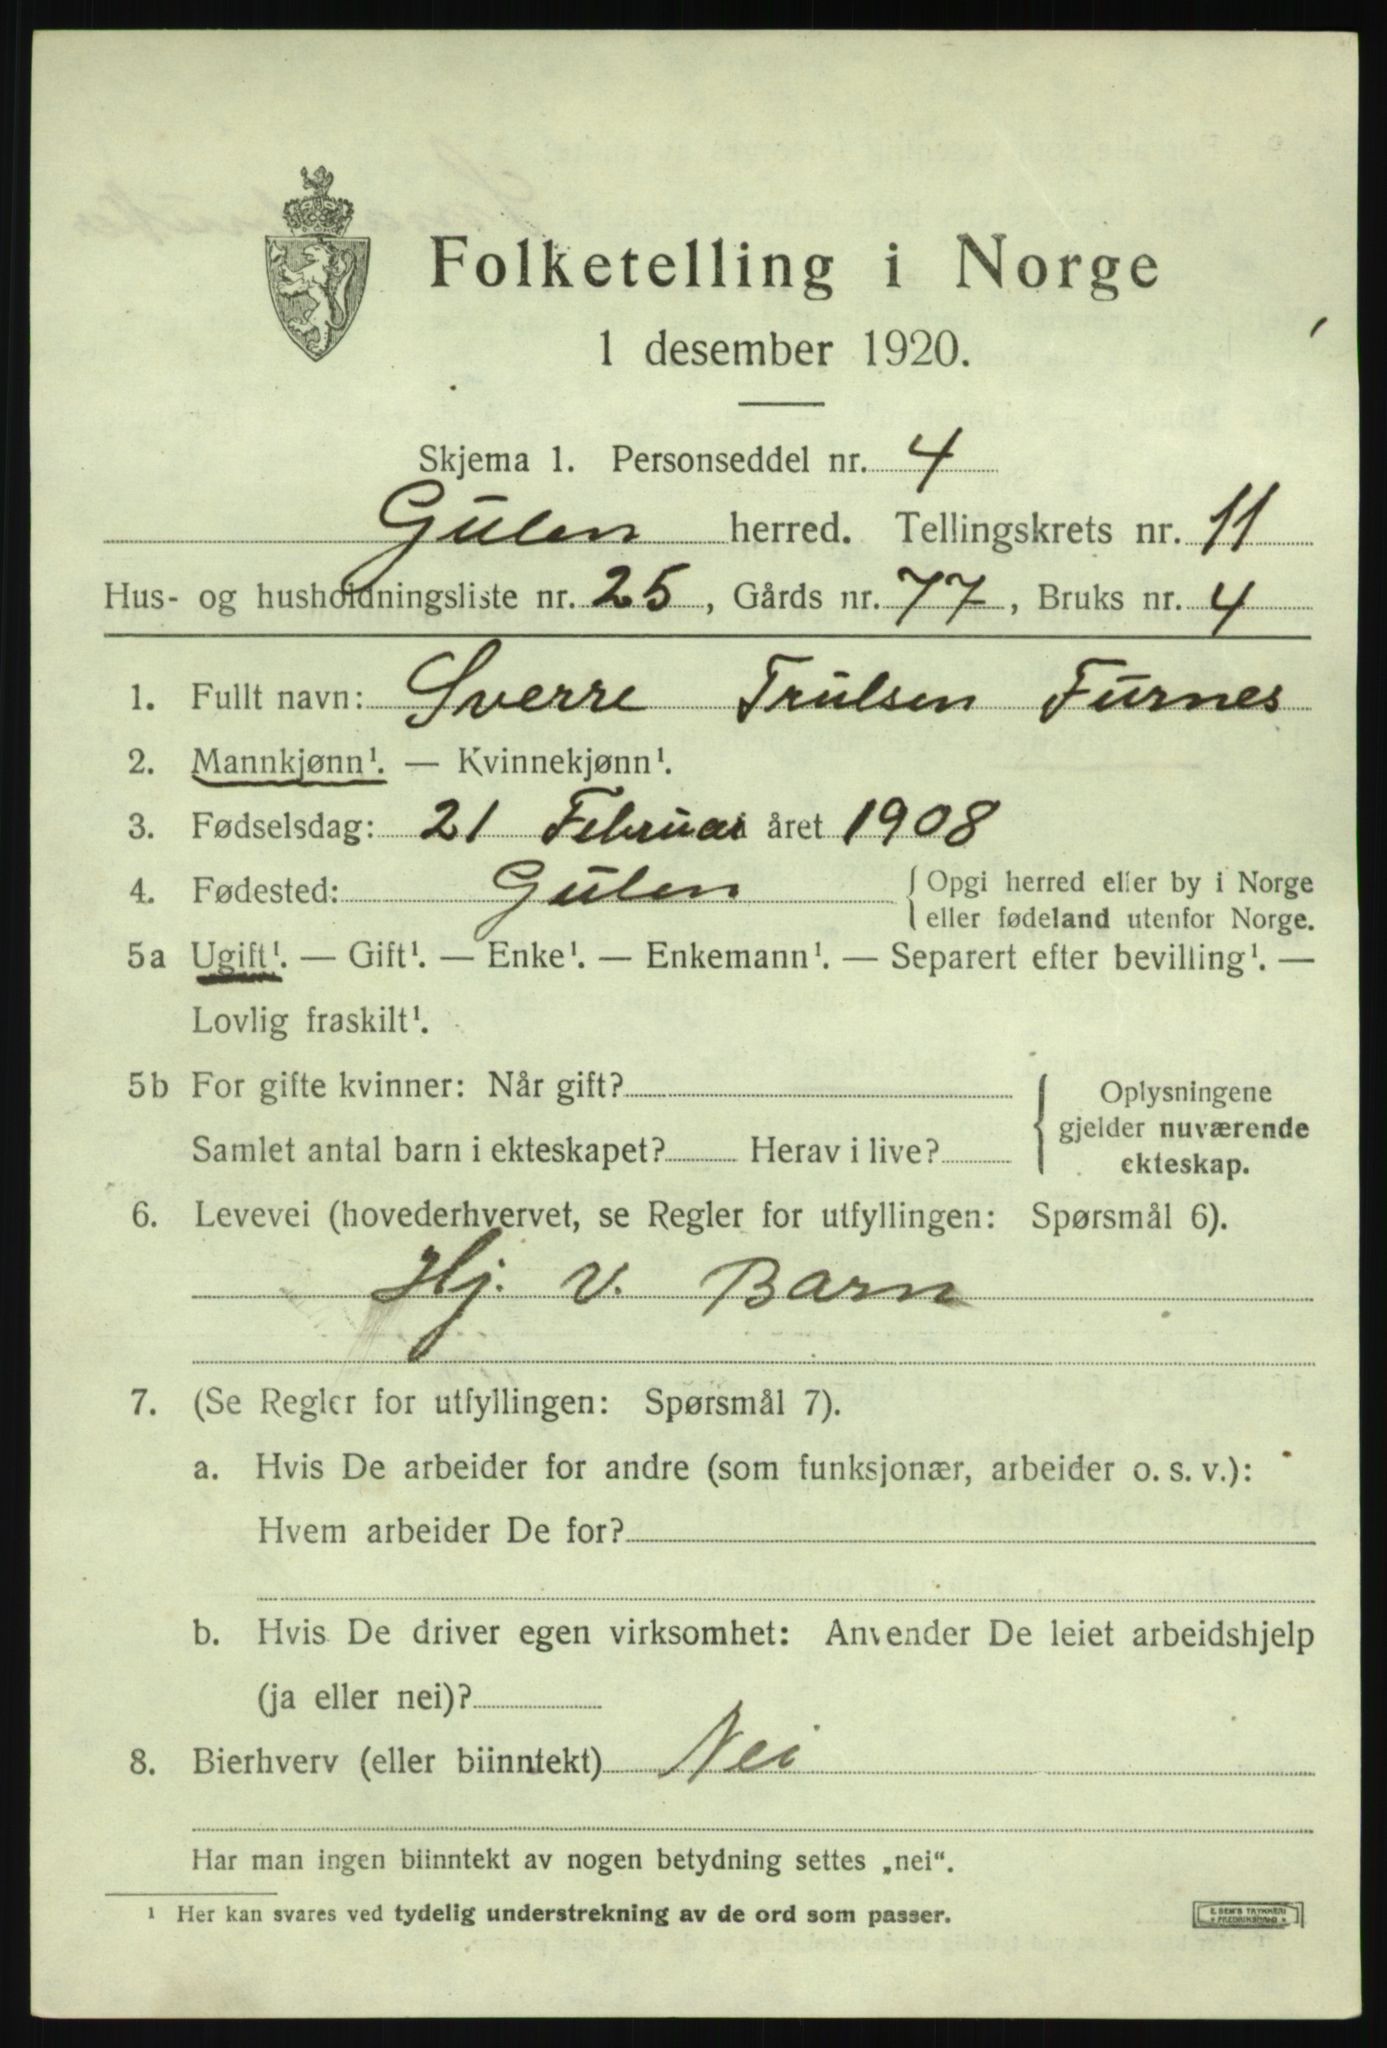 Folketelling i Norge
1 desember 1920.
Skjema 1. Personseddel nr. 4
Gulen herred. Tellingskrets nr. 11
Hus- og husholdningsliste nr. 25, Gårds nr. 77, Bruks nr. 4
1. Fullt navn: Sverre Trulsen Furnes
2. Mannkjønn¹. — Kvinnekjønn¹.
3. Fødselsdag: 21 Februar året 1908
4. Fødested: Gulen { Opgi herred eller by i Norge
eller fødeland utenfor Norge.
5a Ugift¹. — Gift¹. — Enke¹. — Enkemann¹. — Separert efter bevilling¹. —
Lovlig fraskilt¹.
5b For gifte kvinner: Når gift?
Samlet antal barn i ekteskapet? Herav i live?
Oplysningene
gjelder nuværende
ekteskap.
6. Levevei (hovederhvervet, se Regler for utfyllingen: Spørsmål 6).
Hj. v. Barn
7. (Se Regler for utfyllingen: Spørsmål 7).
a. Hvis De arbeider for andre (som funksjonær, arbeider o. s. v.):
Hvem arbeider De for?
b. Hvis De driver egen virksomhet: Anvender De leiet arbeidshjelp
(ja eller nei)?
8. Bierhverv (eller biinntekt) Nei
Har man ingen biinntekt av nogen betydning settes „nei“.
¹ Her kan svares ved tydelig understrekning av de ord som passer.